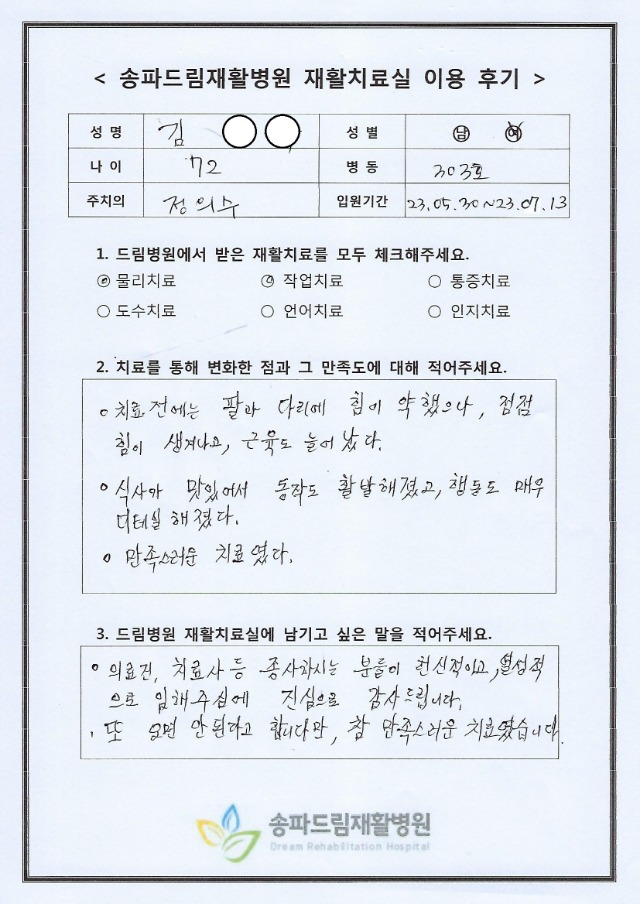 < 송파드림재활병원 재활치료실 이용 후기 >
성 명 김 성 별 남 여
나 이 72 병 동 303호
주치의 정의수 입원기간 23.05.30~23.07.13
1. 드림병원에서 받은 재활치료를 모두 체크해주세요.
물리치료 작업치료 통증치료
도수치료 언어치료 인지치료
2. 치료를 통해 변화한 점과 그 만족도에 대해 적어주세요.
치료전에는 팔과 다리에 힘이 약했으나, 점점
힘이 생겨나고, 근육도 늘어났다.
식사가 맛있어서 동작도 활발해졌고, 행동도 매우
디테일해졌다.
만족스러운 치료였다.
3. 드림병원 재활치료실에 남기고 싶은 말을 적어주세요.
의료건, 치료사등 종사하시는 분들이 헌신적이고, 열성적
으로 임해주심에 진심으로 감사드립니다.
또 오면 안된다고 합니다만, 참 만족스러운 치료였습니다.
송파드림재활병원
Dream Rehabilitation Hospital